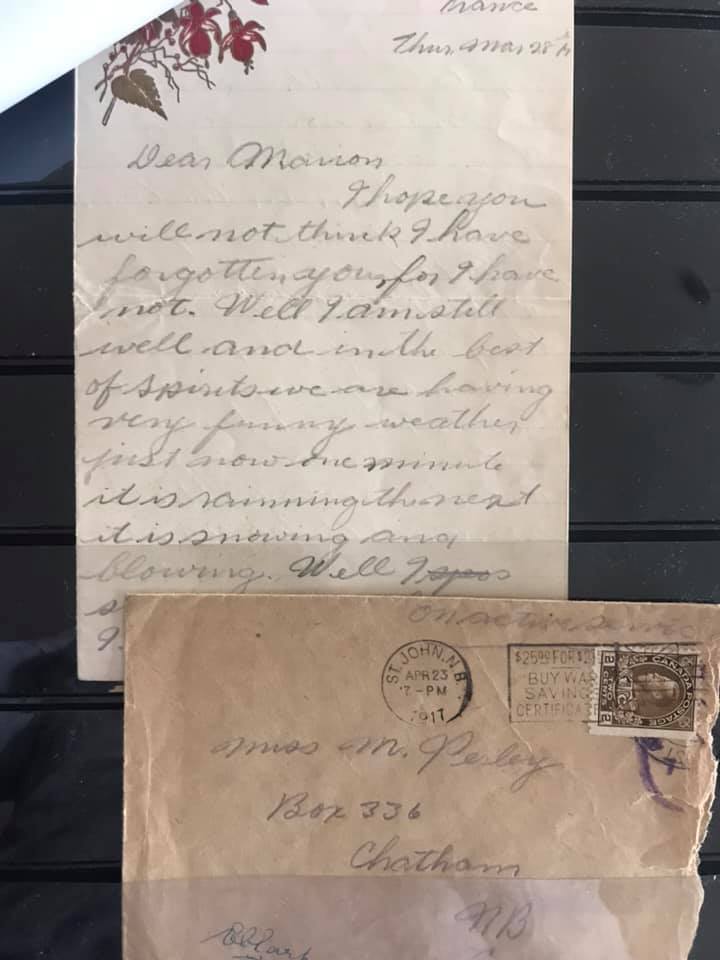 France
Thur. Mar 28th
Dear Marion
I hope you
will not think I have
forgotten you, for I have
not. Well I am still
well and in the best
of spirits we are having
very funny weather
just now one minute
it is rainning the next
it is snowing and
blowing. Well I
On active servic
ST. JOHN, N.B.
APR 23
7-PM
1917
$25.00 FOR $21
BUY WAR
SAVING
CERTIFICATE
CANADA POSTAGE
TWO CENTS
2 2
Miss M. Perley
Box 336
Chatham
NB